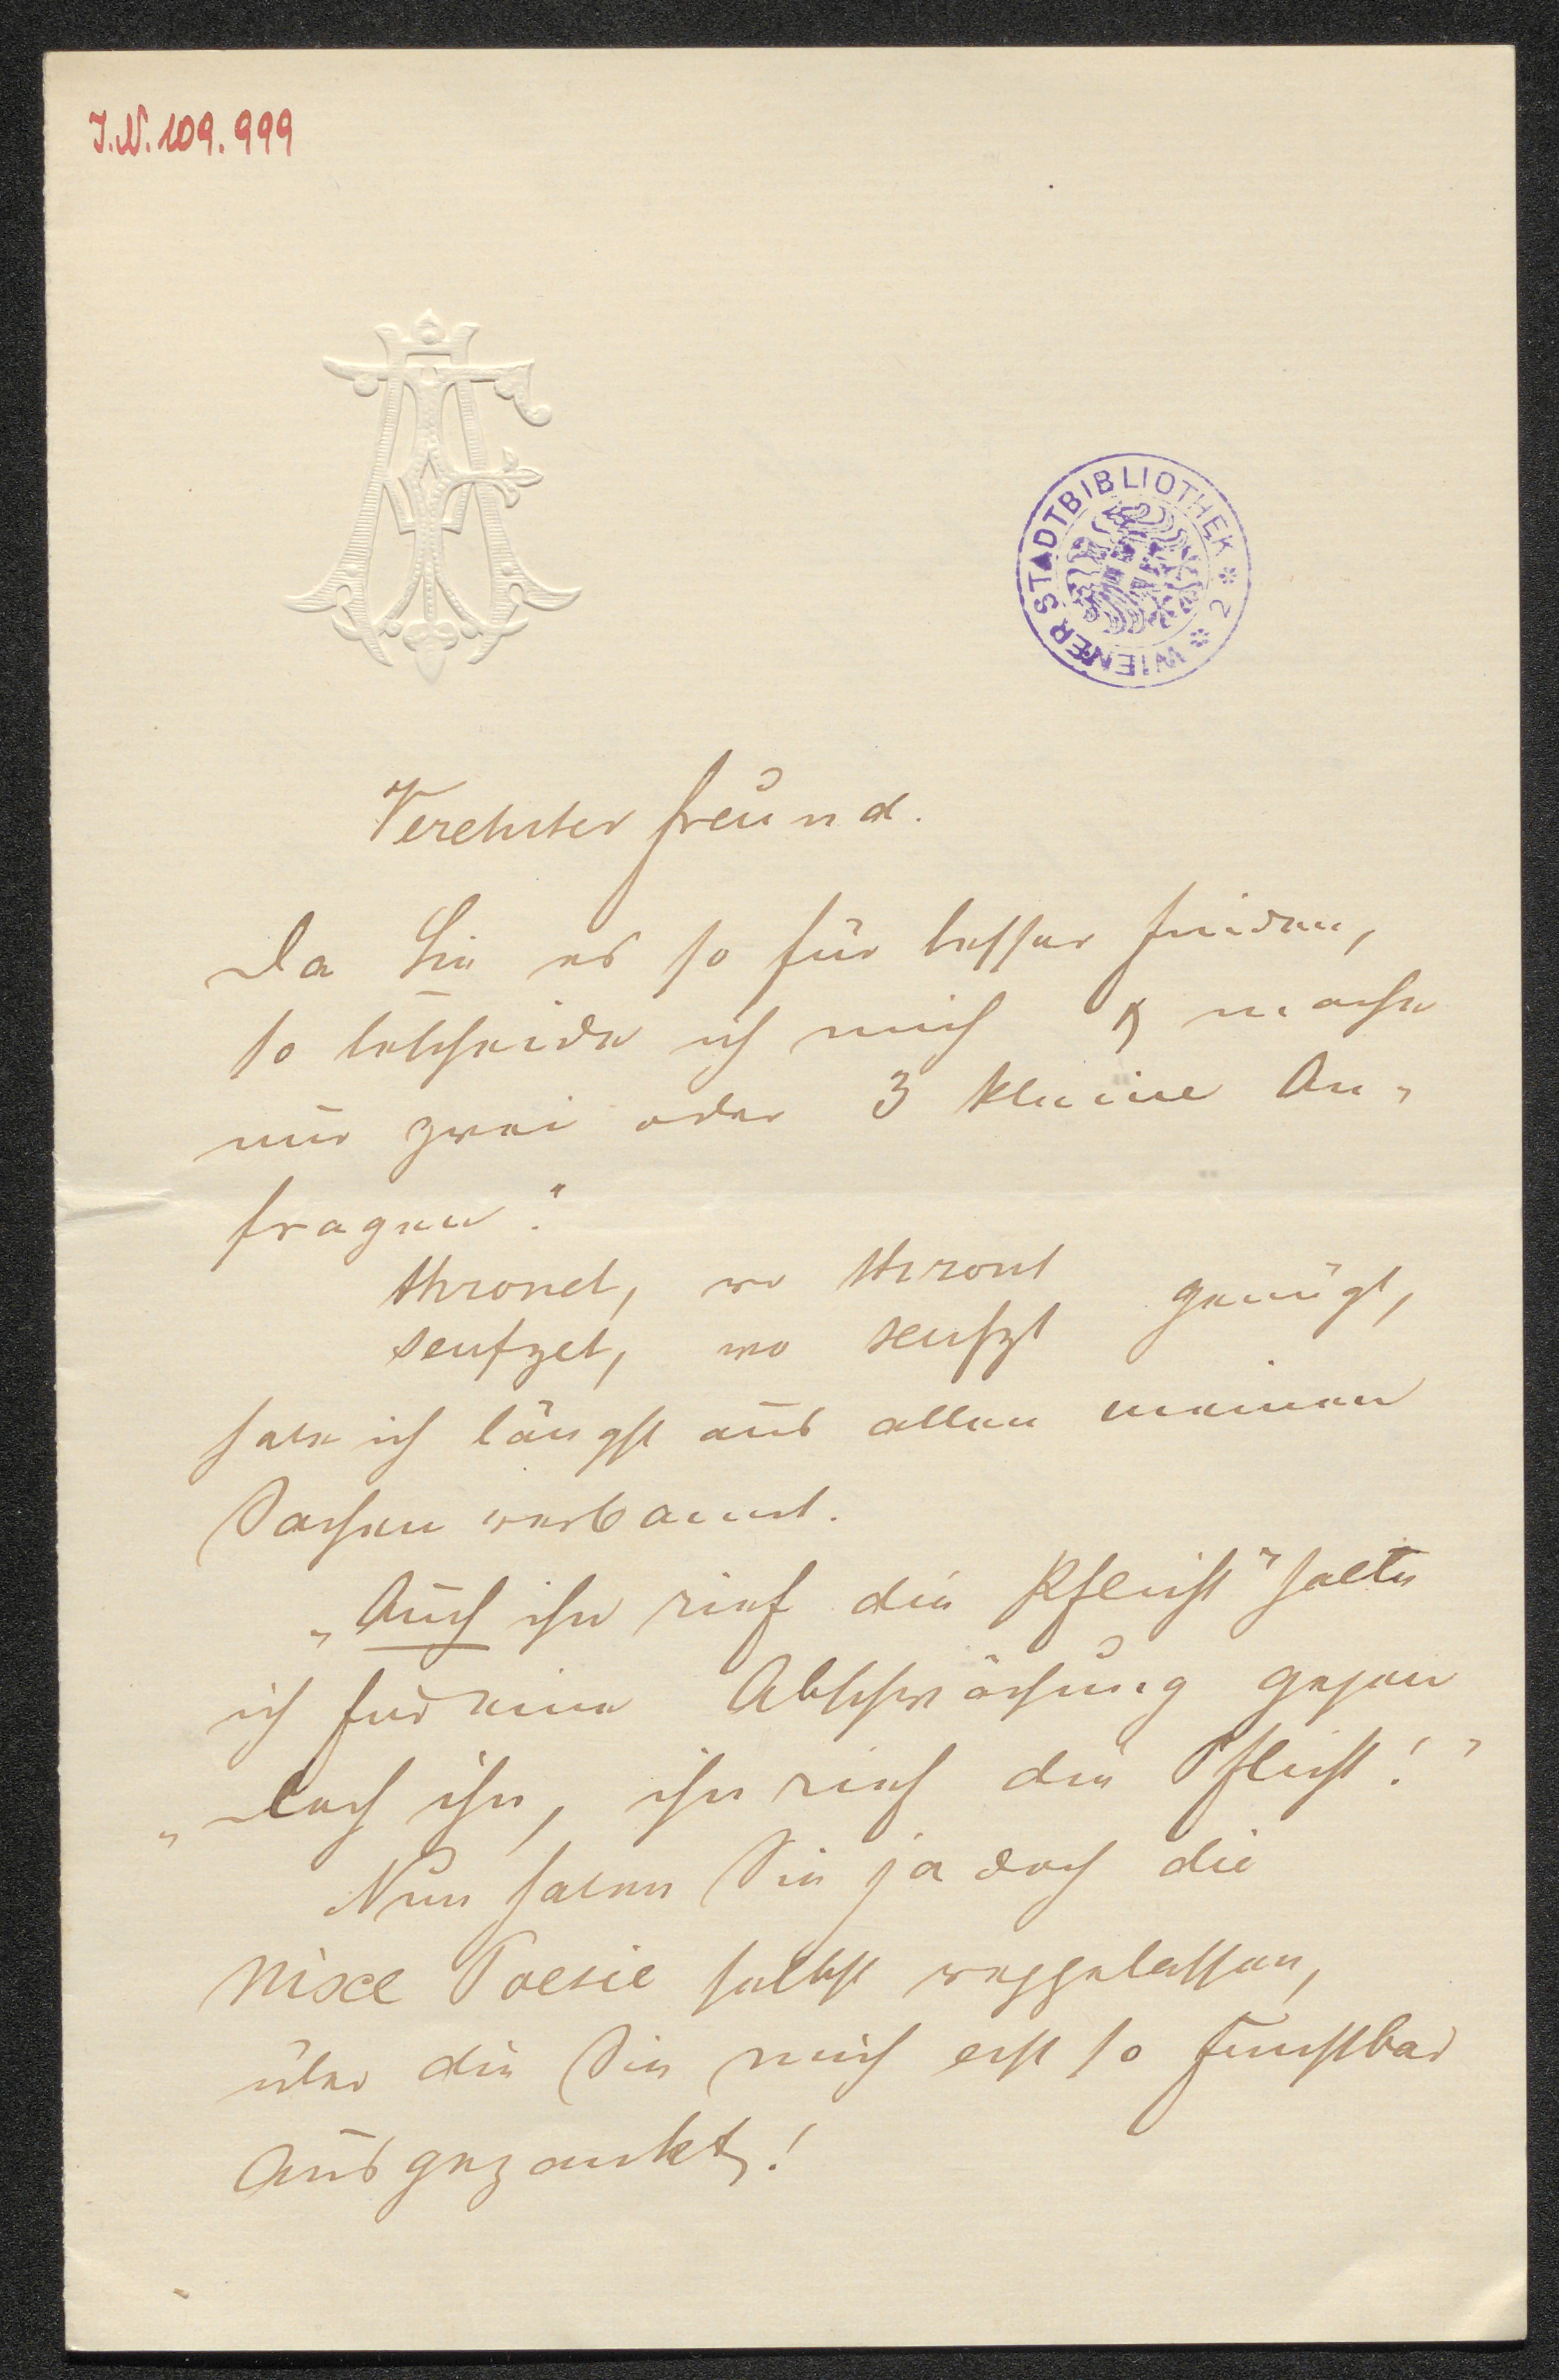 I.N. 109.999
WIENER STADTBIBLIOTHEK * 2 *
Verehrter Freund.
Da Sie es so für besser finden,
so bescheide ich mich & mache
nur zwei oder 3 kleine An-
fragen:"
thronet, wo thront
seufzet, wo seufzt genügt,
habe ich längst aus allen meinen
Sachen verbannt.
"Auch ihn rief die Pflicht" halte
ich für eine Abschwächung gegen
"Doch ihn, ihn rief die Pflicht!"
Nun haben Sie ja doch die
Poesie selbst weggelassen,
über die Sie mich erst so furchtbar
ausgezankt!